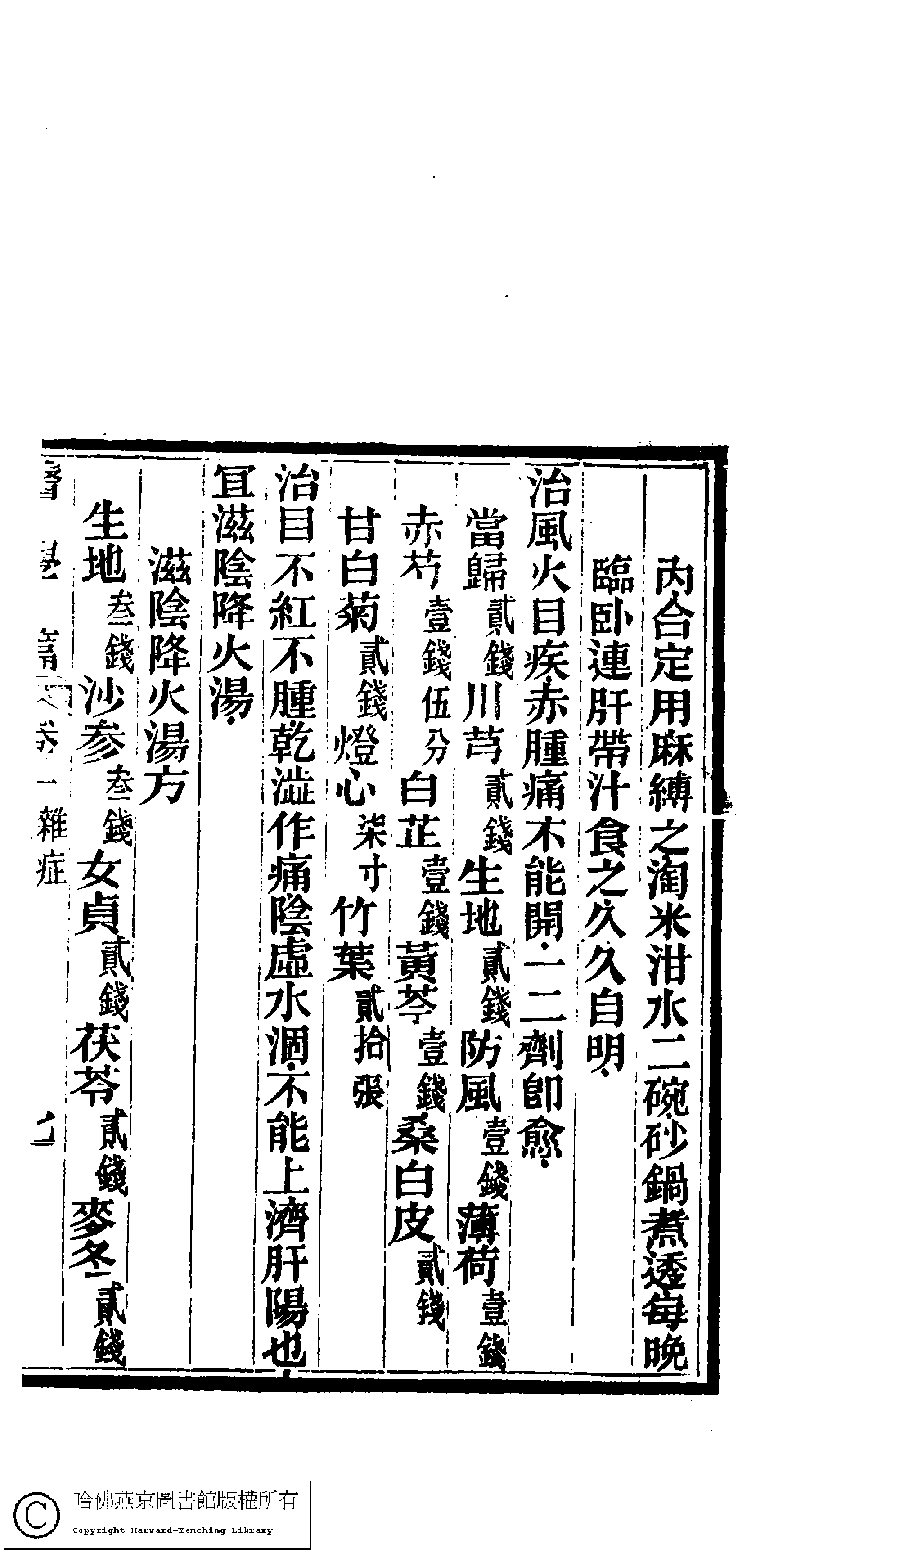 內合定用麻縛之淘米泔水二碗砂鍋煮透每晚
臨卧連肝帶汁食之久久自明
治風火目疾赤腫痛不能開一二劑卽愈
當歸貳錢川芎貳錢生地貳錢防風壹錢薄荷壹錢
赤芍壹錢伍分白芷壹錢黃芩壹錢桑白皮貳錢
甘白菊貳錢燈心柒寸竹葉貳拾張
治目不紅不腫乾澁作痛陰虛水涸不能上濟肝陽也
宜滋陰降火湯
滋陰降火湯方
生地叁錢沙参叁錢女貞貳錢茯苓貳錢麥冬貳錢
醫學篇 卷一雜症
哈佛燕京圖書館版權所有
Copyright Harvard-Yenching Library